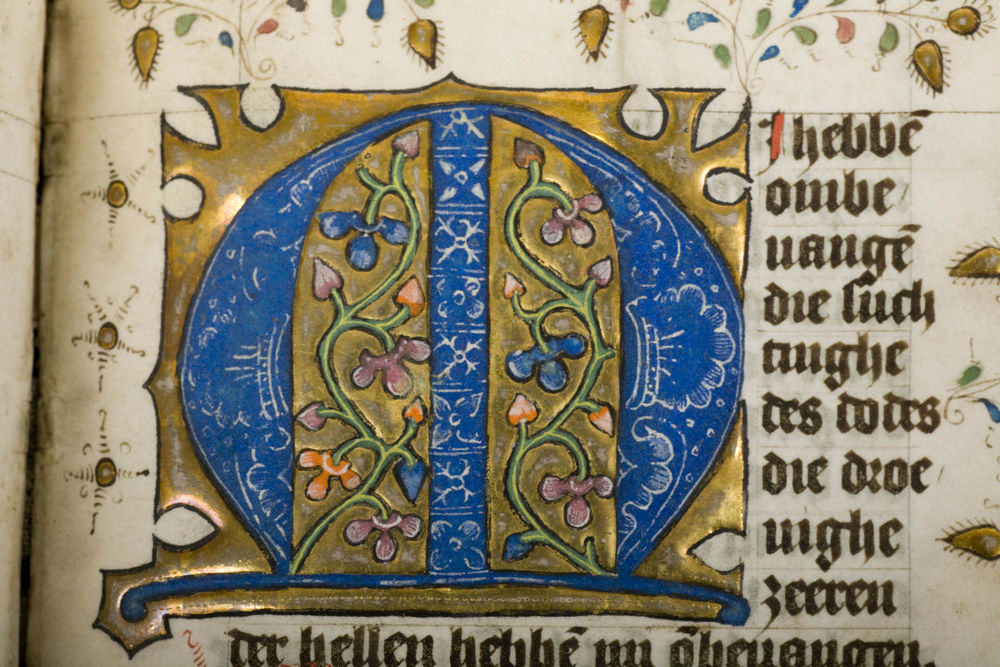 MI hebbē
ombe
uangē
die such
tinghe
des dodes
die droe
uighe
zeeren
der hellen hebbē mi ōbeuangen